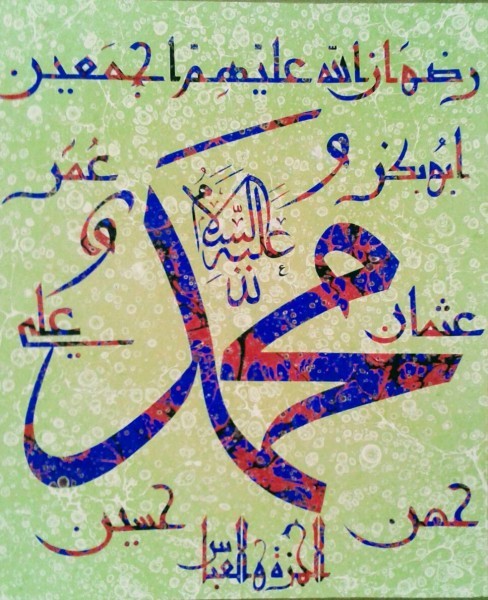 رضوان الله عليهم اجمعين
ابوبكر
عُمَر
عليه السلام
محمد
عثمان
علي
حسن
حسين
الحمزة و العباس